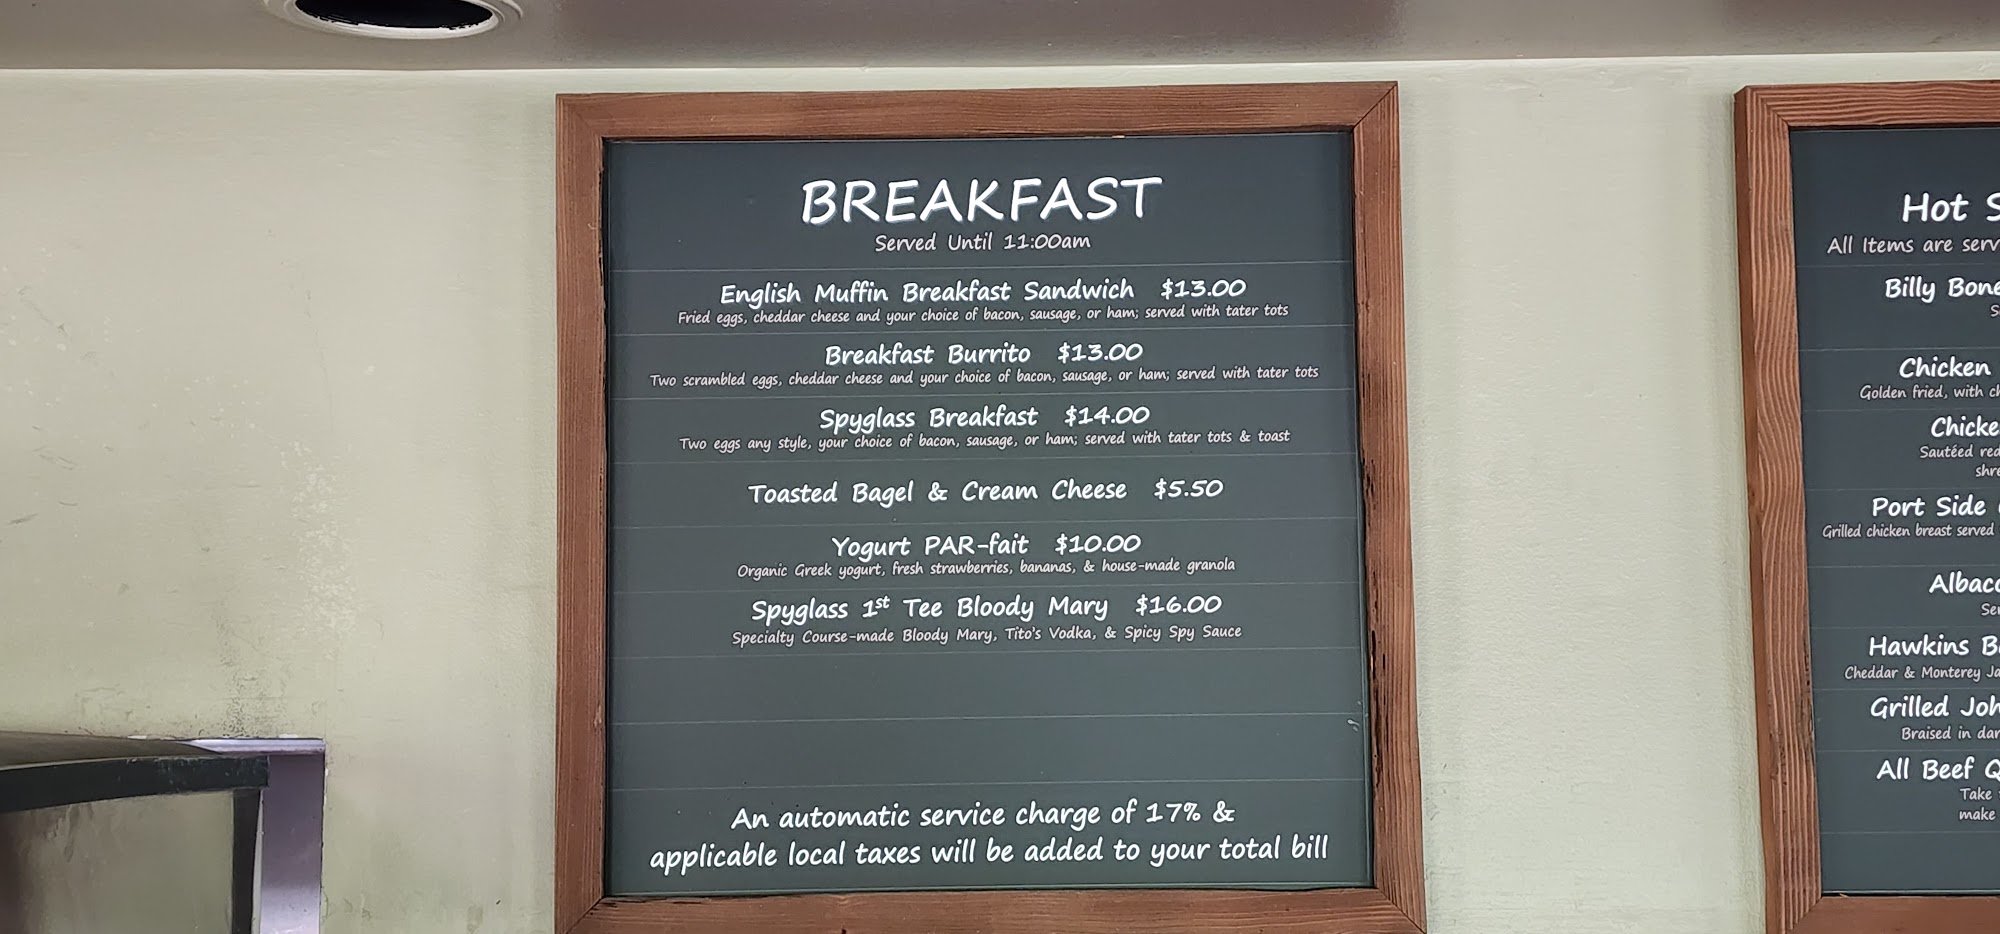 BREAKFAST
Served Until 11:00am
English Muffin Breakfast Sandwich $13.00
Fried eggs, cheddar cheese and your choice of bacon, sausage, or ham; served with tater tots
Breakfast Burrito $13.00
Two scrambled eggs, cheddar cheese and your choice of bacon, sausage, or ham; served with tater tots
Spyglass Breakfast $14.00
Two eggs any style, your choice of bacon, sausage, or ham; served with tater tots & toast
Toasted Bagel & Cream Cheese $5.50
Yogurt PAR-fait $10.00
Organic Greek yogurt, fresh strawberries, bananas, & house-made granola
Spyglass 1st Tee Bloody Mary $16.00
Specialty Course-made Bloody Mary, Tito's Vodka, & Spicy Spy Sauce
An automatic service charge of 17% &
applicable local taxes will be added to your total bill
Hot
All Items are
Billy
Chicken
Golden fried, with
Sautéed
Port Side
Grilled chicken breast served
Hawkins
Cheddar & Monterey
Grilled
Braised in
All Beef
Take
make